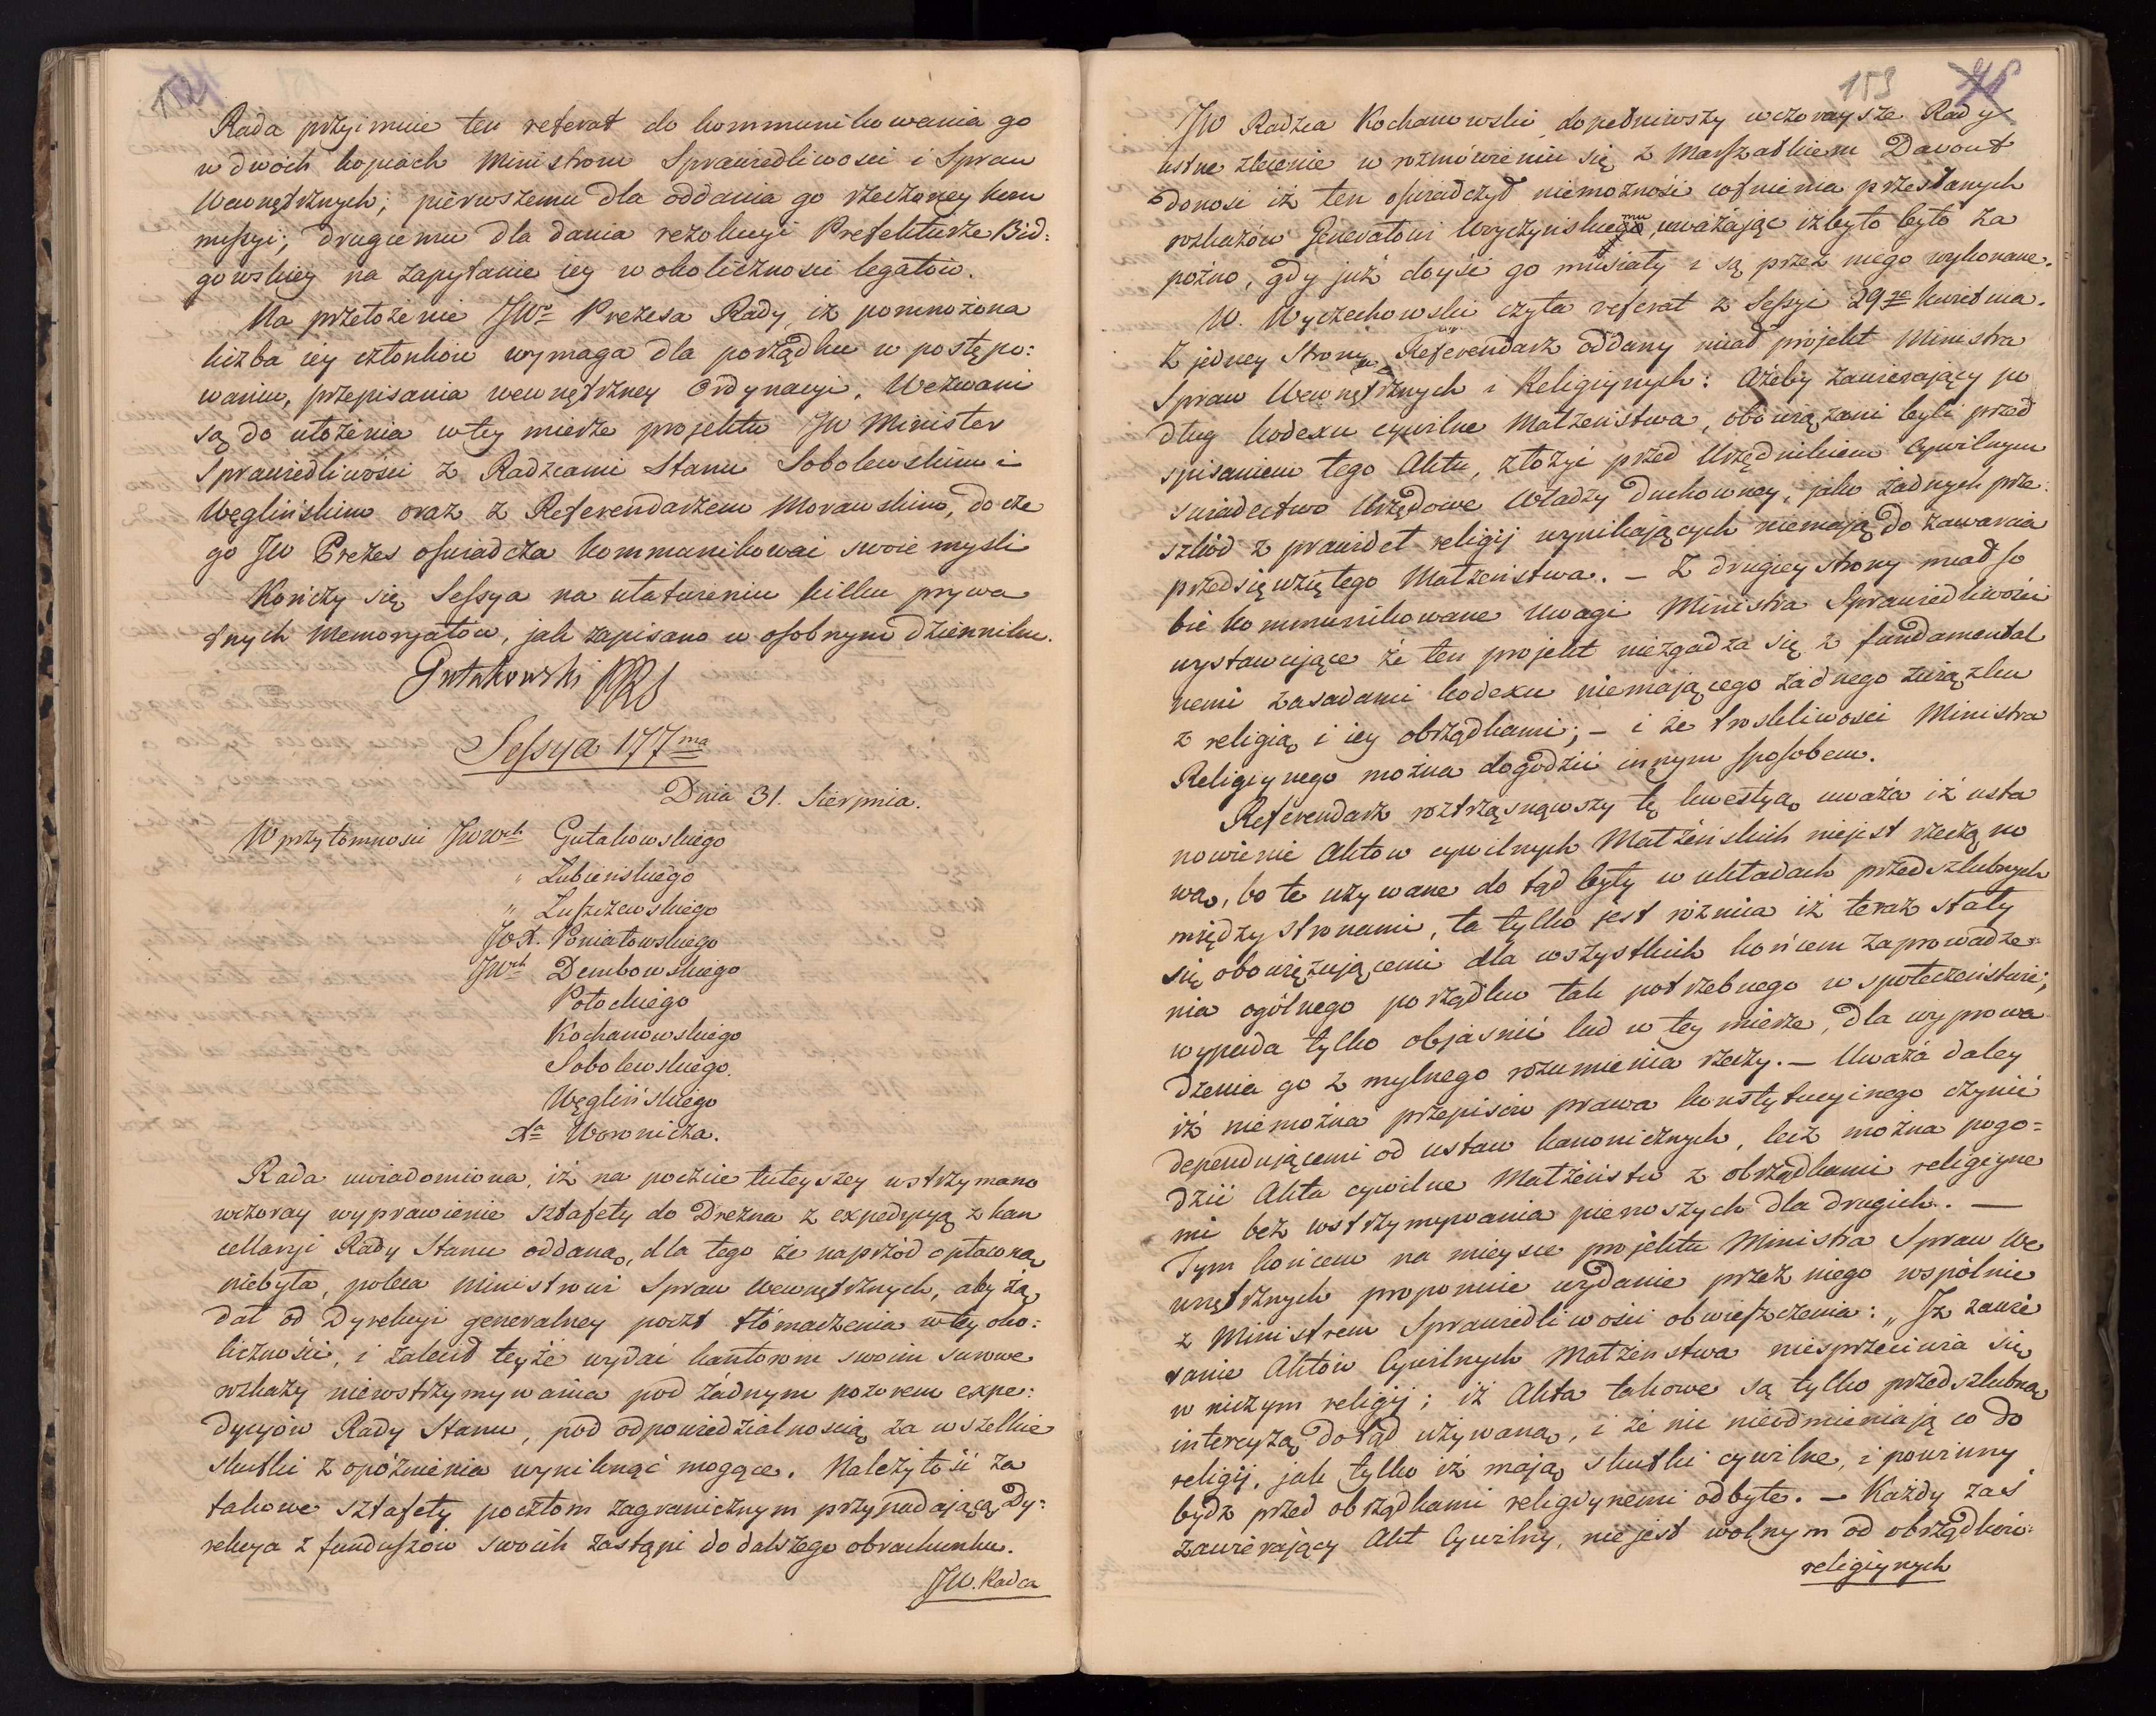 152
Rada przyimuie ten referat do kommunikowania go
w dwóch kopiach Ministrom Sprawiedliwości i Spraw
Wewnętrznych; pierwszemu dla oddania go rzeczoney kom
missyi; drugiemu dla dania rezolucyi Prefekturze Bid:
gowskiey na zapytanie iey w okoliczności legatów.
Na przełożenie JWo Prezesa Rady, iż pomnożona
liczba iey członków wymaga dla porządku w postępo:
waniu, przepisania wewnętrzney Ordynacyi, Wezwani
są do ułożenia w tey mierze projektu JW Minister
Sprawiedliwości z Radzcami Stanu Sobolewskim i
Węglińskim oraz z Referendarzem Morawskim, do cze
go JW Prezes oświadcza kommunikować swoie myśli
Kończy się Sessya na ułatwieniu kilku prywa
tnych Memoryałów, jak zapisano w osobnym dzienniku.
Gutakowski PRS
Sessya 177ma
Dnia 31. Sierpnia.
W przytomności JWWch Gutakowskiego
" Łubieńskiego
" Łuszczewskiego
JOX. Poniatowskiego
JWch Dembowskiego
Potockiego
Kochanowskiego
Sobolewskiego.
Węglińskiego
Xa Woronicza.
Rada uwiadomiona, iż na poczcie tuteyszey wstrzymano
wczoray wyprawienie sztafety do Drezna z expedycyą z kan
cellaryi Rady Stanu oddaną, dla tego że naprzód opłaconą
niebyła, poleca Ministrowi Spraw Wewnętrznych, aby żą
dał od Dyrekcyi generalney poczt tłómaczenia w tey oko:
liczności, i zalecił teyże wydać kantorom swoim surowe
rozkazy niewstrzymywania pod żadnym pozorem expe:
dycyów Rady Stanu, pod odpowiedzialnością za wszelkie
skutki z opóźnienia wyniknąć mogące. Należytość za
takowe sztafety pocztom zagranicznym przypadającą Dy:
rekcya z funduszów swoich zastąpi do dalszego obrachunku.
JW. Radca
153
JW Radzca Kochanowski dopełniwszy wczoraysze Rady
ustne zlecenie w rozmówieniu się z Marszałkiem Davout
donosi iż ten oświadczył niemożność cofnienia przesłanych
rozkazów Generałowi Woyczyńskiemu, uważając iż by to było za
poźno, gdy już doyść go musiały i są przez niego wykonane.
W. Wyczechowski czyta referat z Sessyi 29go kwietnia.
Z jedney Strony Referendarz oddany miał projekt Ministra
Spraw Wewnętrznych i Religiynych: Ażeby zawierający po
dług kodexu cywilne Małżeństwa, obowiązani byli przed
spisaniem tego Aktu, złożyć przed Urzędnikiem Cywilnym
świadectwo Urzędowe Władzy duchowney, jako żadnych prze
szkód z prawideł religij wynikających niemają do zawarcia
przedsięwziętego Małżeństwa. – Z drugiey strony miał so
bie kommunikowane Uwagi Ministra Sprawiedliwości
wystawujące że ten projekt niezgadza się z fundamental
nemi zasadami kodexu niemającego żadnego związku
z religią i iey obrządkami; – i że troskliwości Ministra
Religiynego można dogodzić innym sposobem.
Referendarz roztrząsnąwszy tę kwestyą uważa iż usta
nowienie Aktów cywilnych Małżeńskich niejest rzeczą no
wą, bo te używane do tąd były w układach przedszlubnych
między stronami, ta tylko jest różnica iż teraz stały
się obowięzującemi dla wszystkich końcem zaprowadze:
nia ogólnego porządku tak potrzebnego w społeczeństwie;
wypada tylko objaśnić lud w tey mierze, dla wyprowa
dzenia go z mylnego rozumienia rzeczy. – Uważa daley
iż niemożna przepisów prawa konstytucyinego czynić
dependującemi od ustaw kanonicznych, lecz można pogo=
dzić Akta cywilne Małżeństw z obrządkami religiyne
mi bez wstrzymywania pierwszych dla drugich. —
Tym końcem na mieysce projektu Ministra Spraw We
wnętrznych proponuie wydanie przez niego wspólnie
z Ministrem Sprawiedliwości obwieszczenia: „Iż zawie
ranie Aktów Cywilnych Małżeństwa niesprzeciwia się
w niczym religij; iż Akta takowe są tylko przedszlubną
intercyzą dotąd używaną, i że nic nieodmieniają co do
religij, jak tylko iż mają skutki cywilne, i powinny
bydź przed obrządkami religiynemi odbyte. – Każdy zaś
zawierający Akt Cywilny, niejest wolnym od obrządków
religiynych